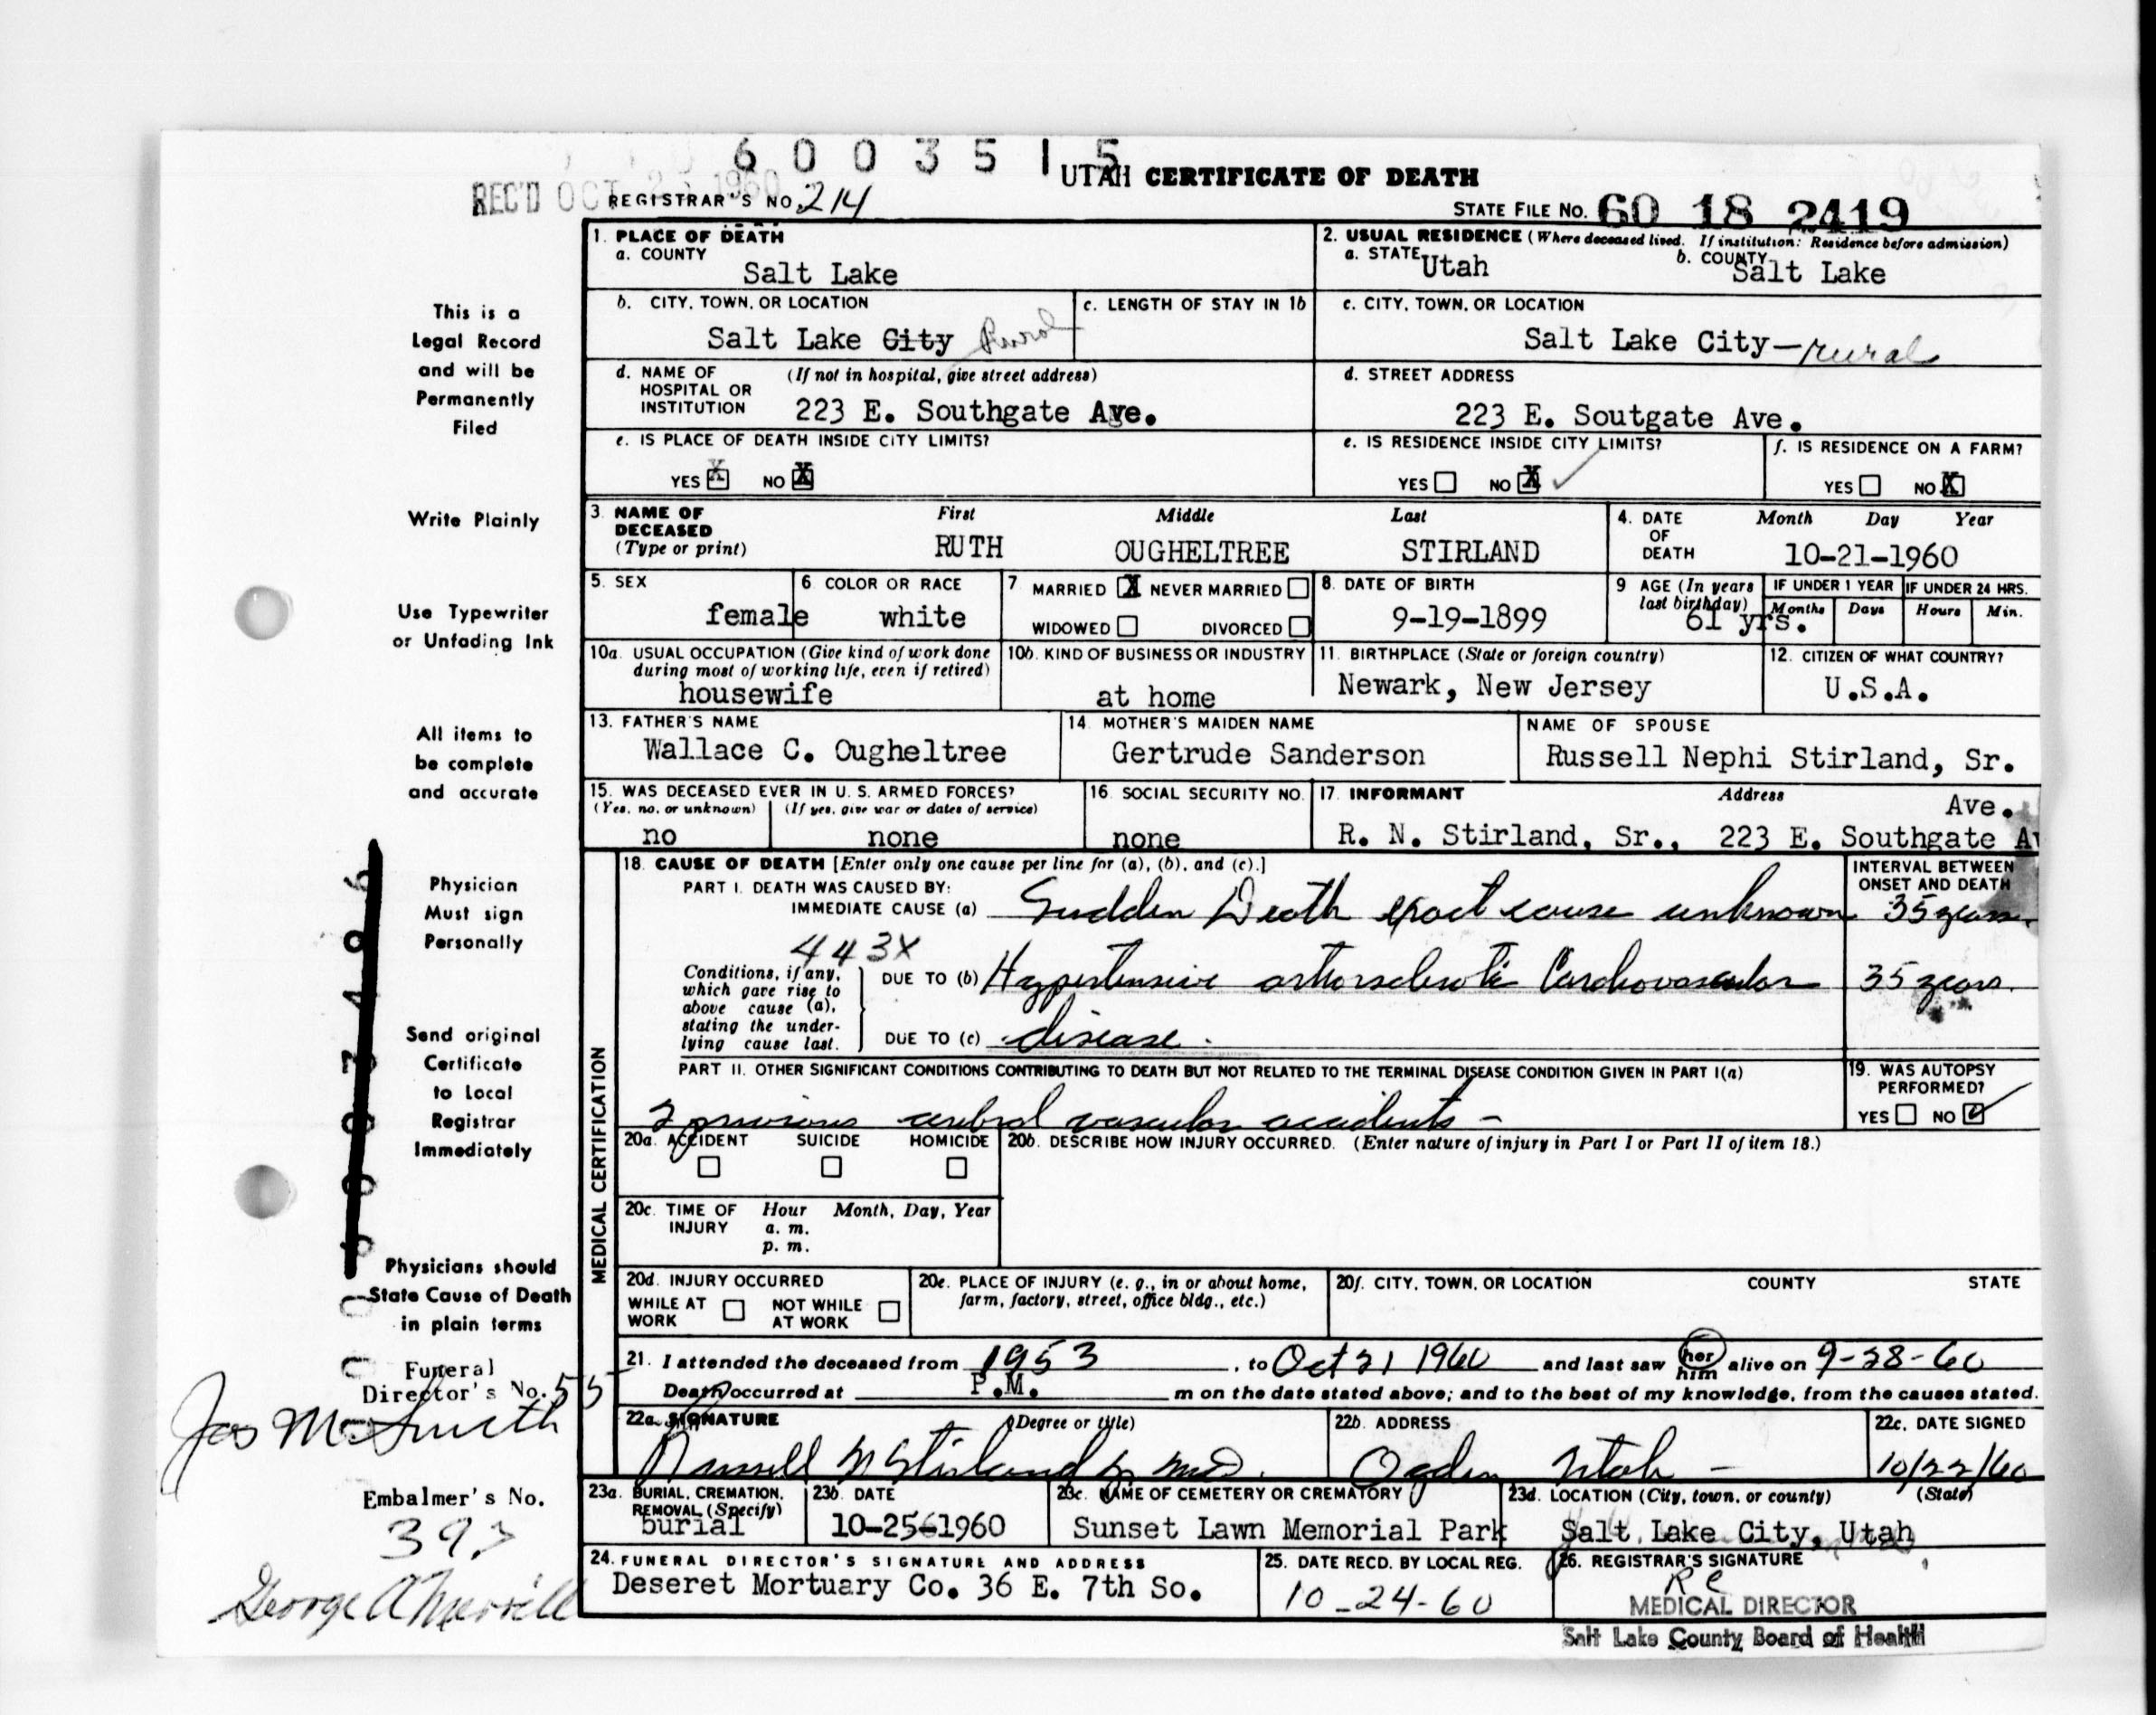 6 0 0 3 5 1 5
UTAH CERTIFICATE OF DEATH
REC'D OCT 1960
REGISTRAR'S NO. 214
STATE FILE NO. 60 18 2419
1. PLACE OF DEATH
a. COUNTY
Salt Lake
2. USUAL RESIDENCE (Where deceased lived. If institution: Residence before admission)
a. STATE Utah
b. COUNTY Salt Lake
b. CITY, TOWN, OR LOCATION
Salt Lake City Rural
c. LENGTH OF STAY IN 1b
c. CITY, TOWN, OR LOCATION
Salt Lake City—rural
d. NAME OF HOSPITAL OR INSTITUTION (If not in hospital, give street address)
223 E. Southgate Ave.
d. STREET ADDRESS
223 E. Soutgate Ave.
e. IS PLACE OF DEATH INSIDE CITY LIMITS?
YES X NO X
e. IS RESIDENCE INSIDE CITY LIMITS?
YES NO X
f. IS RESIDENCE ON A FARM?
YES NO X
3. NAME OF DECEASED (Type or print)
First Middle Last
RUTH OUGHELTREE STIRLAND
4. DATE OF DEATH
Month Day Year
10-21-1960
5. SEX
female
6 COLOR OR RACE
white
7 MARRIED X NEVER MARRIED
WIDOWED DIVORCED
8. DATE OF BIRTH
9-19-1899
9 AGE (In years last birthday)
61 yrs.
IF UNDER 1 YEAR IF UNDER 24 HRS.
Months Days Hours Min.
10a. USUAL OCCUPATION (Give kind of work done during most of working life, even if retired)
housewife
10b. KIND OF BUSINESS OR INDUSTRY
at home
11. BIRTHPLACE (State or foreign country)
Newark, New Jersey
12. CITIZEN OF WHAT COUNTRY?
U.S.A.
13. FATHER'S NAME
Wallace C. Ougheltree
14. MOTHER'S MAIDEN NAME
Gertrude Sanderson
NAME OF SPOUSE
Russell Nephi Stirland, Sr.
15. WAS DECEASED EVER IN U. S. ARMED FORCES?
(Yes, no, or unknown) (If yes, give war or dates of service)
no none
16. SOCIAL SECURITY NO.
none
17. INFORMANT Address
Ave.
R. N. Stirland, Sr., 223 E. Southgate
MEDICAL CERTIFICATION
18. CAUSE OF DEATH [Enter only one cause per line for (a), (b), and (c).]
INTERVAL BETWEEN ONSET AND DEATH
PART I. DEATH WAS CAUSED BY:
IMMEDIATE CAUSE (a) Sudden Death exact cause unknown 35 years.
443X
Conditions, if any, which gave rise to above cause (a), stating the underlying cause last.
DUE TO (b) Hypertensive arteriosclerotic Cardiovascular 35 years.
DUE TO (c) disease.
PART II. OTHER SIGNIFICANT CONDITIONS CONTRIBUTING TO DEATH BUT NOT RELATED TO THE TERMINAL DISEASE CONDITION GIVEN IN PART I(a)
2 previous cerebral vascular accidents -
19. WAS AUTOPSY PERFORMED?
YES NO ✓
20a. ACCIDENT SUICIDE HOMICIDE
20b. DESCRIBE HOW INJURY OCCURRED. (Enter nature of injury in Part I or Part II of item 18.)
20c. TIME OF INJURY Hour Month, Day, Year
a. m.
p. m.
20d. INJURY OCCURRED
WHILE AT WORK NOT WHILE AT WORK
20e. PLACE OF INJURY (e. g., in or about home, farm, factory, street, office bldg., etc.)
20f. CITY, TOWN, OR LOCATION COUNTY STATE
21. I attended the deceased from 1953, to Oct 21 1960 and last saw her him alive on 9-28-60
Death occurred at P.M. m on the date stated above; and to the best of my knowledge, from the causes stated.
22a. SIGNATURE (Degree or title)
Russell N Stirland Jr MD.
22b. ADDRESS
Ogden Utah -
22c. DATE SIGNED
10/22/60
23a. BURIAL, CREMATION, REMOVAL (Specify)
burial
23b. DATE
10-25-1960
23c. NAME OF CEMETERY OR CREMATORY
Sunset Lawn Memorial Park
23d. LOCATION (City, town, or county) (State)
Salt Lake City, Utah
24. FUNERAL DIRECTOR'S SIGNATURE AND ADDRESS
Deseret Mortuary Co. 36 E. 7th So.
25. DATE RECD. BY LOCAL REG.
10-24-60
26. REGISTRAR'S SIGNATURE
RC
MEDICAL DIRECTOR
Salt Lake County Board of Health
This is a
Legal Record
and will be
Permanently
Filed
Write Plainly
Use Typewriter
or Unfading Ink
All items to
be complete
and accurate
Physician
Must sign
Personally
Send original
Certificate
to Local
Registrar
Immediately
Physicians should
State Cause of Death
in plain terms
Funeral
Director's No. 55
Jas M. Smith
Embalmer's No.
393
George A Merrill